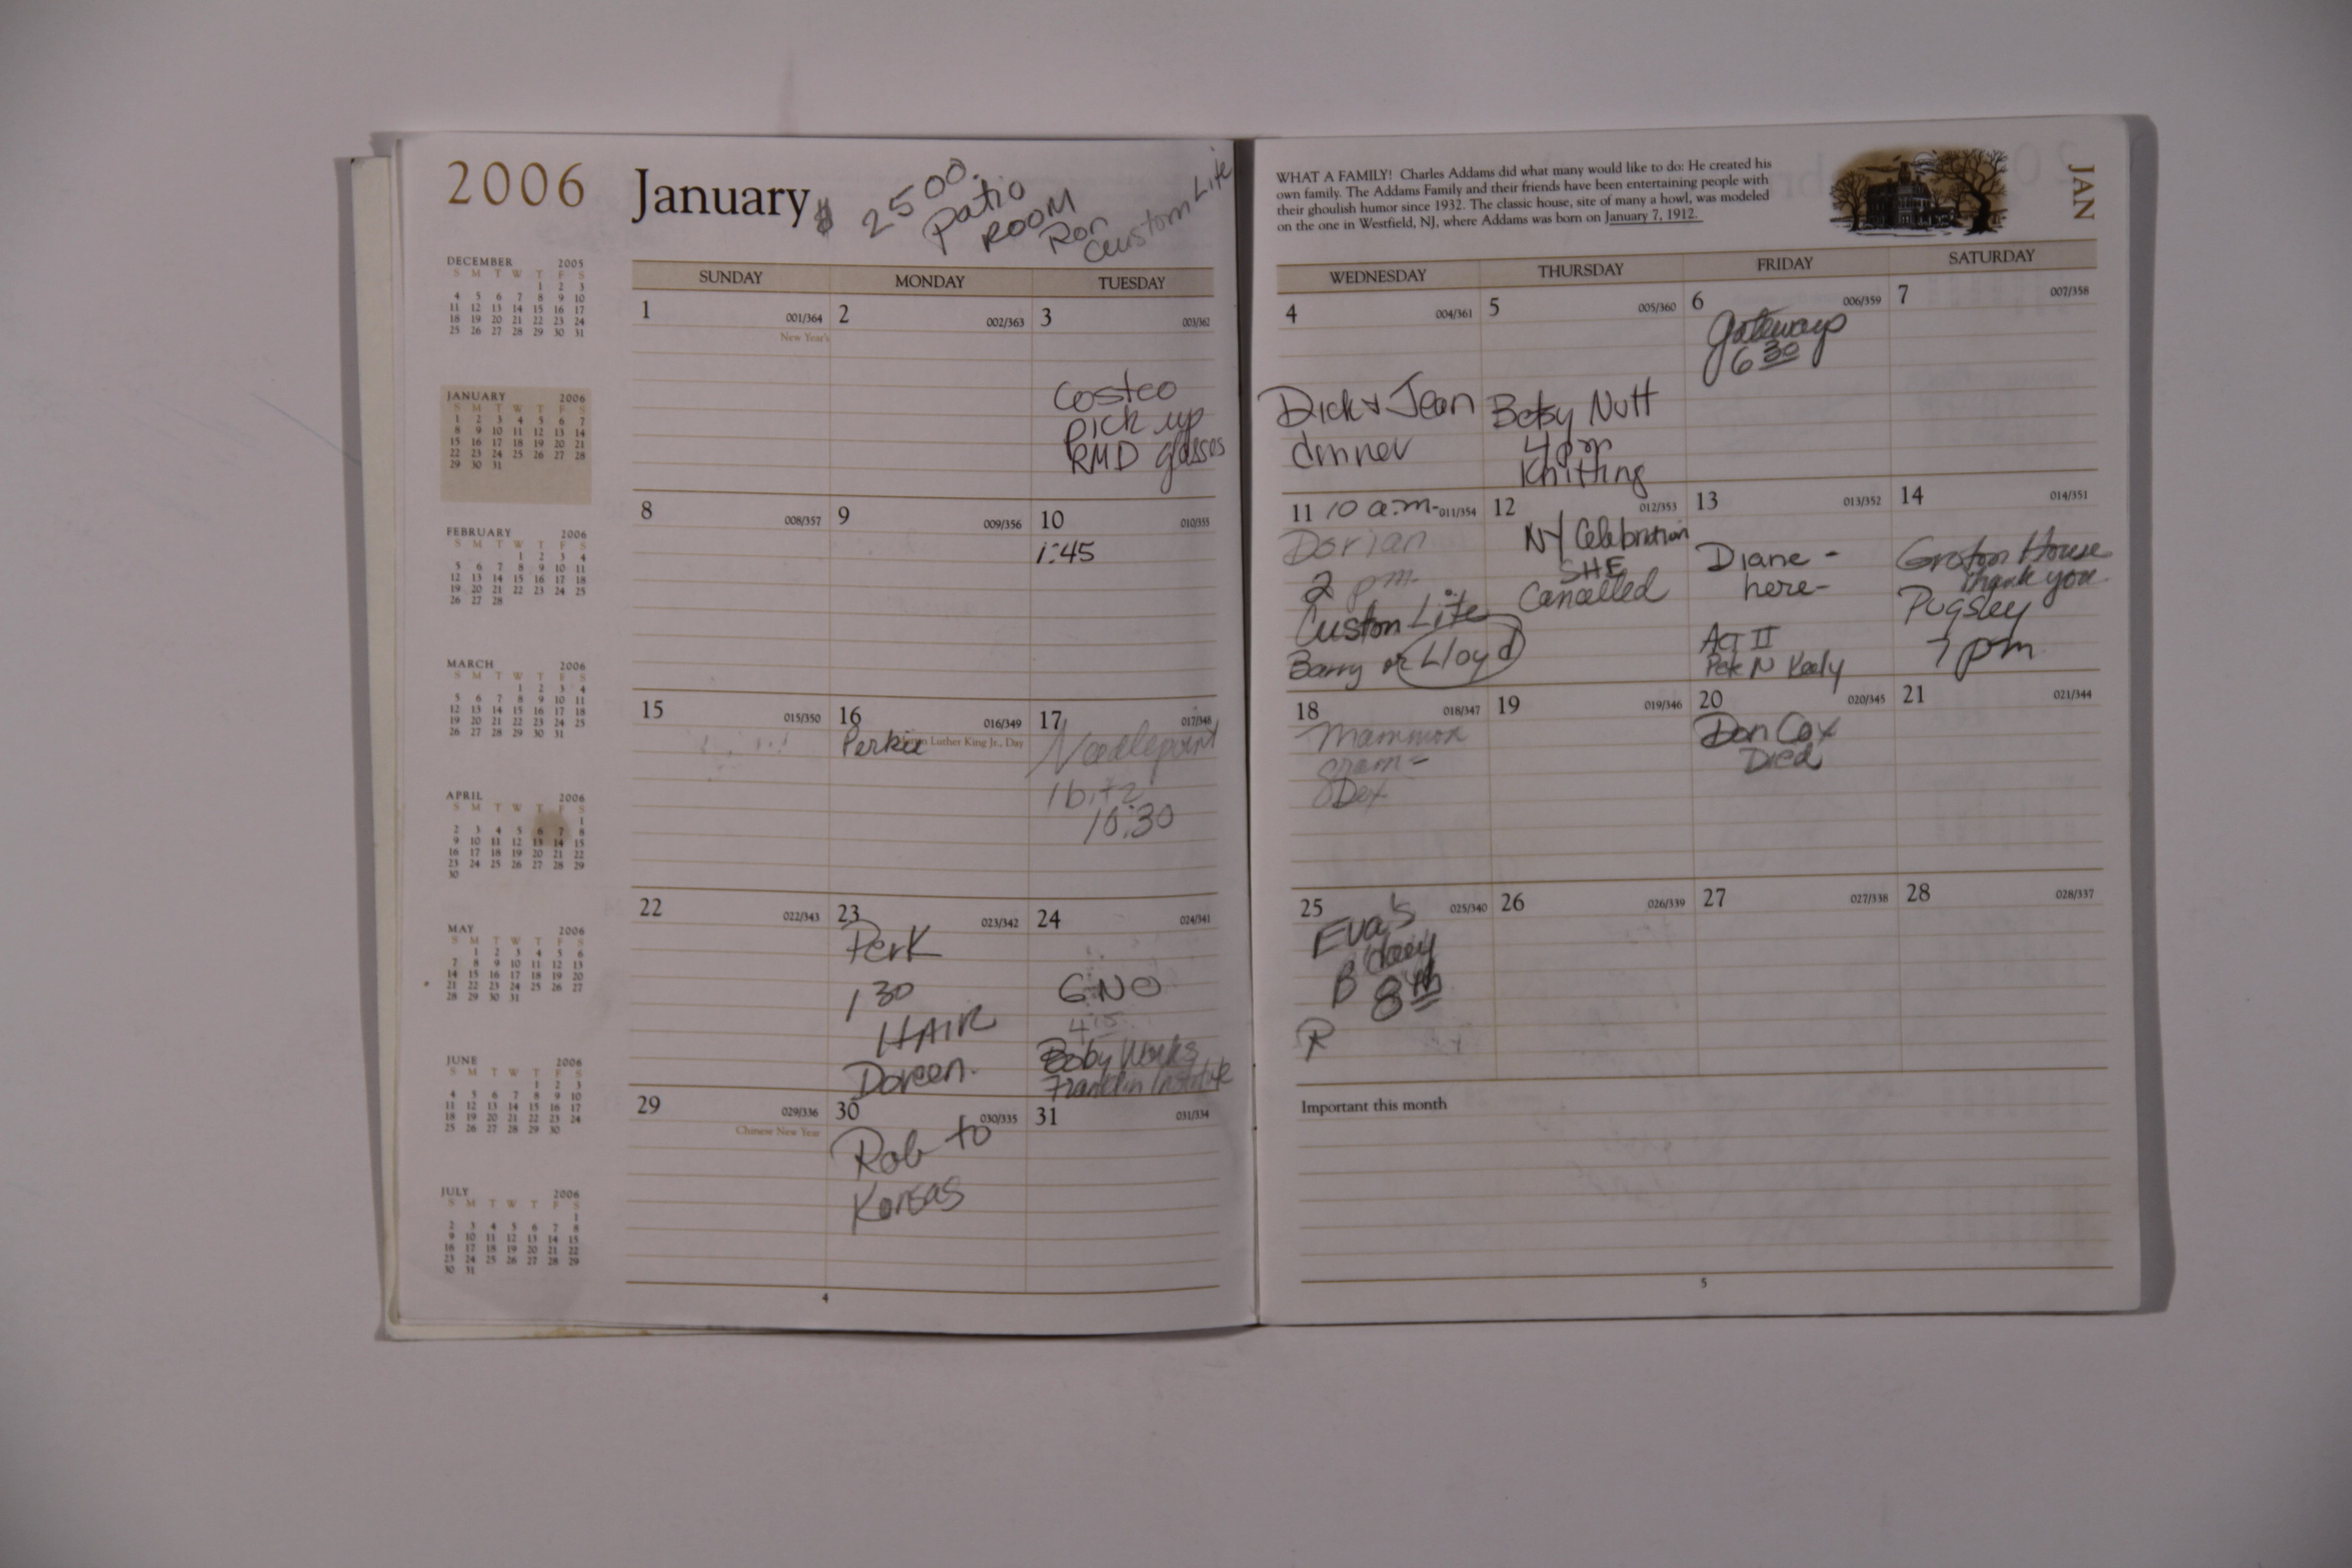 2006
January
$ 2500.
Patio
ROOM
Ron
Custom Lite
DECEMBER 2005
S M T W T F S
1 2 3
4 5 6 7 8 9 10
11 12 13 14 15 16 17
18 19 20 21 22 23 24
25 26 27 28 29 30 31
JANUARY 2006
S M T W T F S
1 2 3 4 5 6 7
8 9 10 11 12 13 14
15 16 17 18 19 20 21
22 23 24 25 26 27 28
29 30 31
FEBRUARY 2006
S M T W T F S
1 2 3 4
5 6 7 8 9 10 11
12 13 14 15 16 17 18
19 20 21 22 23 24 25
26 27 28
MARCH 2006
S M T W T F S
1 2 3 4
5 6 7 8 9 10 11
12 13 14 15 16 17 18
19 20 21 22 23 24 25
26 27 28 29 30 31
APRIL 2006
S M T W T F S
1
2 3 4 5 6 7 8
9 10 11 12 13 14 15
16 17 18 19 20 21 22
23 24 25 26 27 28 29
30
MAY 2006
S M T W T F S
1 2 3 4 5 6
7 8 9 10 11 12 13
14 15 16 17 18 19 20
21 22 23 24 25 26 27
28 29 30 31
JUNE 2006
S M T W T F S
1 2 3
4 5 6 7 8 9 10
11 12 13 14 15 16 17
18 19 20 21 22 23 24
25 26 27 28 29 30
JULY 2006
S M T W T F S
1
2 3 4 5 6 7 8
9 10 11 12 13 14 15
16 17 18 19 20 21 22
23 24 25 26 27 28 29
30 31
SUNDAY MONDAY TUESDAY
1 001/364
New Year's
2 002/363
3 003/362
Costco
pick up
RMD glasses
8 008/357
9 009/356
10 010/355
1:45
15 015/350
16 016/349
Luther King Jr., Day
Perkie
17 017/348
Needlepoint
10:30
22 022/343
23 023/342
Perk
1 30
HAIR
Doreen.
24 024/341
GNO
4 15
Baby Works
Franklin Institute
29 029/336
Chinese New Year
30 030/335
Rob to
Kansas
31 031/334
4
WHAT A FAMILY! Charles Addams did what many would like to do: He created his
own family. The Addams Family and their friends have been entertaining people with
their ghoulish humor since 1932. The classic house, site of many a howl, was modeled
on the one in Westfield, NJ, where Addams was born on January 7, 1912.
JAN
WEDNESDAY THURSDAY FRIDAY SATURDAY
4 004/361
Dick + Jean
dinner
5 005/360
Betsy Nutt
4 pm
Knitting
6 006/359
Gateways
6 30
7 007/358
11 011/354
10 a.m-
Dorian
2 pm
Custom Lite
Barry or Lloyd
12 012/353
NY Celebration
SHE
Cancelled
13 013/352
Diane -
here-
Act II
Pete N Keely
14 014/351
Groton House
thank you
Pugsley
7 pm
18 018/347
19 019/346
20 020/345
Don Cox
Died
21 021/344
25 025/340
Eva's
B'day
8th
R
26 026/339
27 027/338
28 028/337
Important this month
5